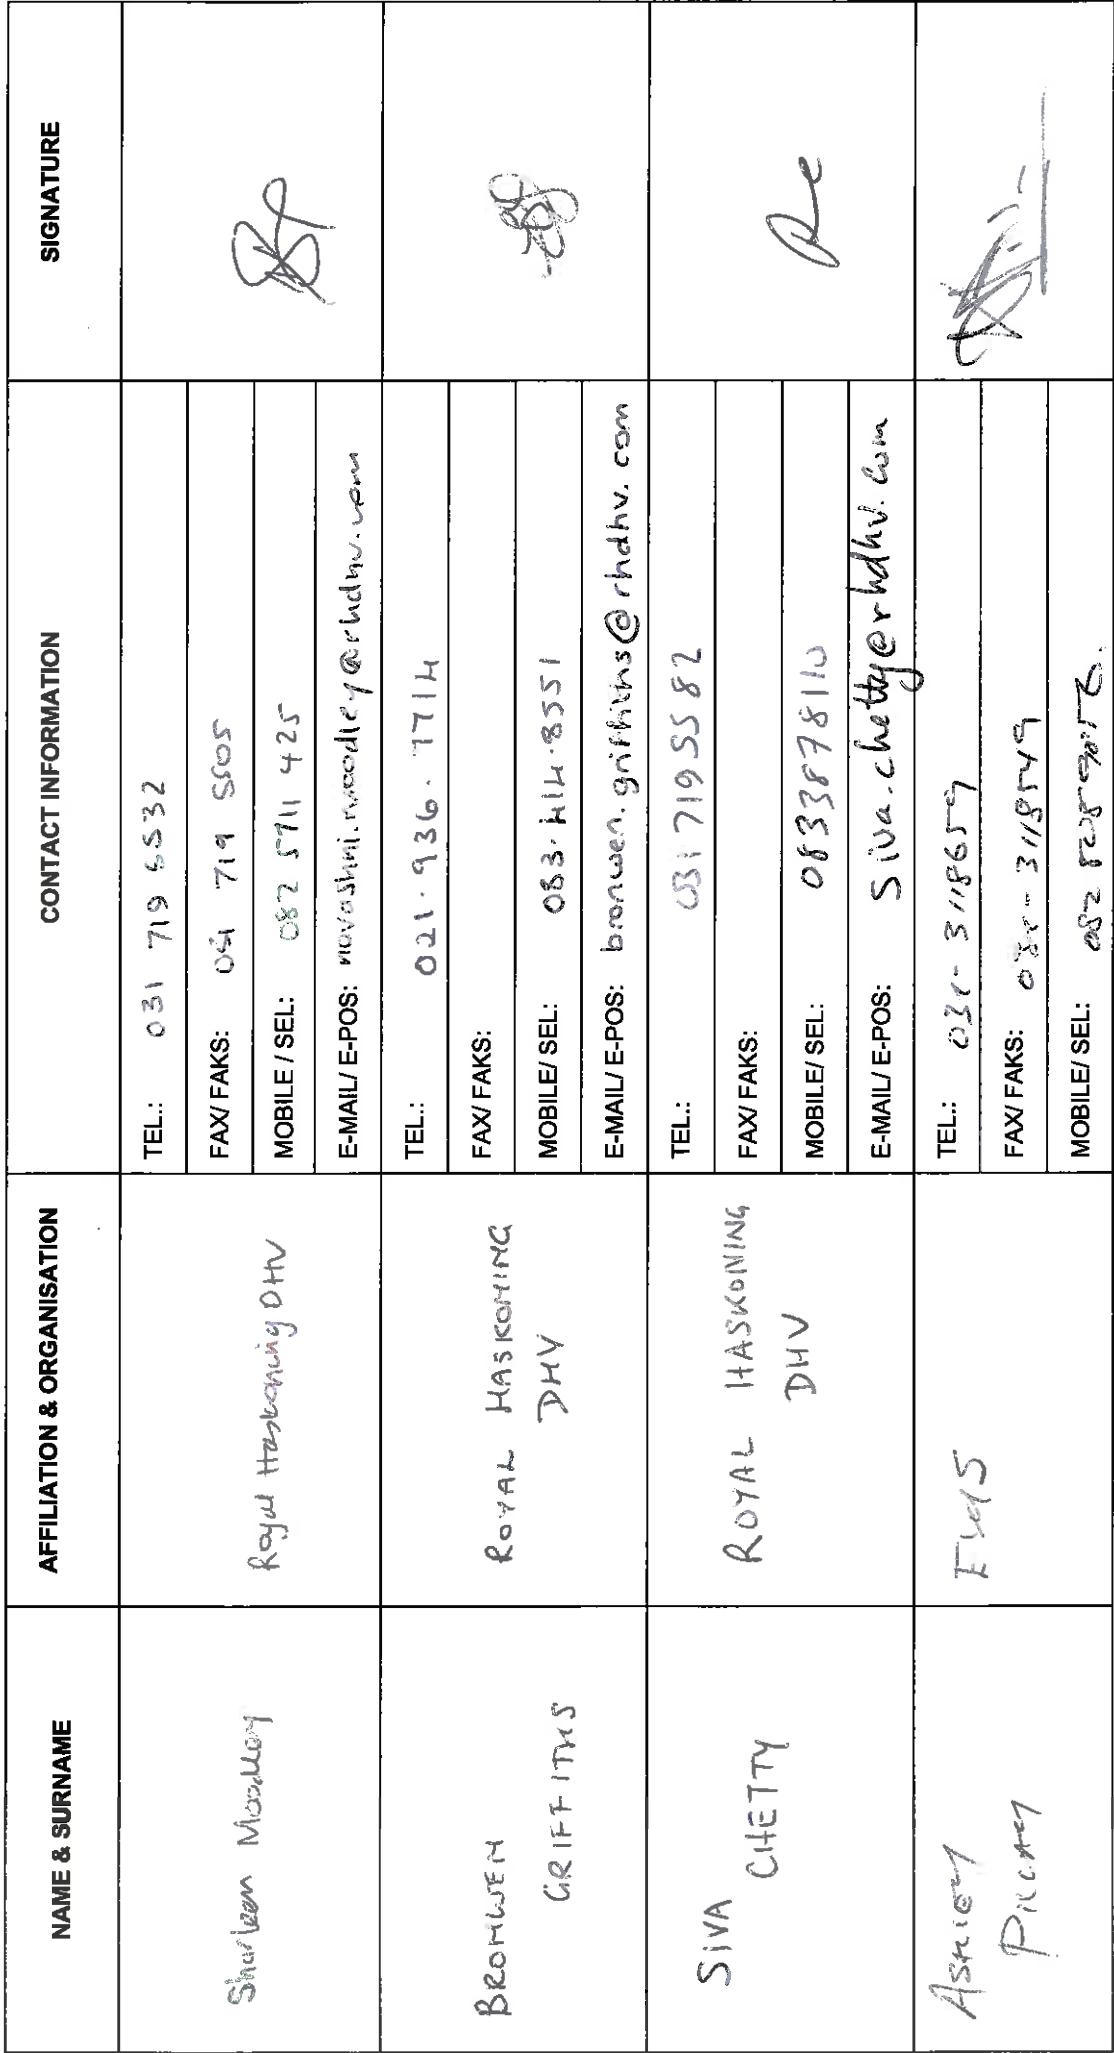 NAME & SURNAME
AFFILIATION & ORGANISATION
CONTACT INFORMATION
SIGNATURE
Sharleen Moodley
Royal Haskoning DHV
TEL.: 031 719 5532
FAX/ FAKS: 719 5505
MOBILE / SEL: 082 5711 425
E-MAIL/ E-POS: novashni.moodley@rhdhv.com
BRONWEN
GRIFFITHS
ROYAL HASKONING
DHV
TEL.: 021.936.7714
FAX/ FAKS:
MOBILE/ SEL: 083.414.8551
E-MAIL/ E-POS: bronwen.griffiths@rhdhv.com
SIVA
CHETTY
ROYAL HASKONING
DHV
TEL.: 031 7195582
FAX/ FAKS:
MOBILE/ SEL:
E-MAIL/ E-POS: Siva.chetty@rhdhv.com
ASHLEY
PILLAY
TEL.: 031- 3118659
FAX/ FAKS: 3118549
MOBILE/ SEL: 082